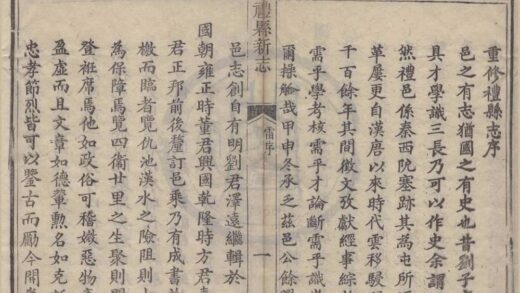 重修禮縣志序
邑之有志猶國之有史也昔劉子
具才學識三長乃可以作史余謂
然禮邑係秦西阨塞跡其為屯所
革屢更自漢唐以來時代雲移駿
千百餘年其間徵文攷獻經事綜
需乎學考核需乎才論斷需乎識
爾操觚哉甲申冬承乏茲邑公餘
禮縣新志
序
一
邑志創自有明劉君澤遠繼輯於
國朝雍正時董君興國乾隆時方君
君正邦前後釐訂邑乘乃有成書
檄而臨者覽仇池漢水之險阻則
為保障焉覽四衛廿里之生聚則
登衽席焉他如政俗可稽媺惡物
盈虛而且文章如德輦勲名如克
忠孝節烈皆可以鑒古而勵今開